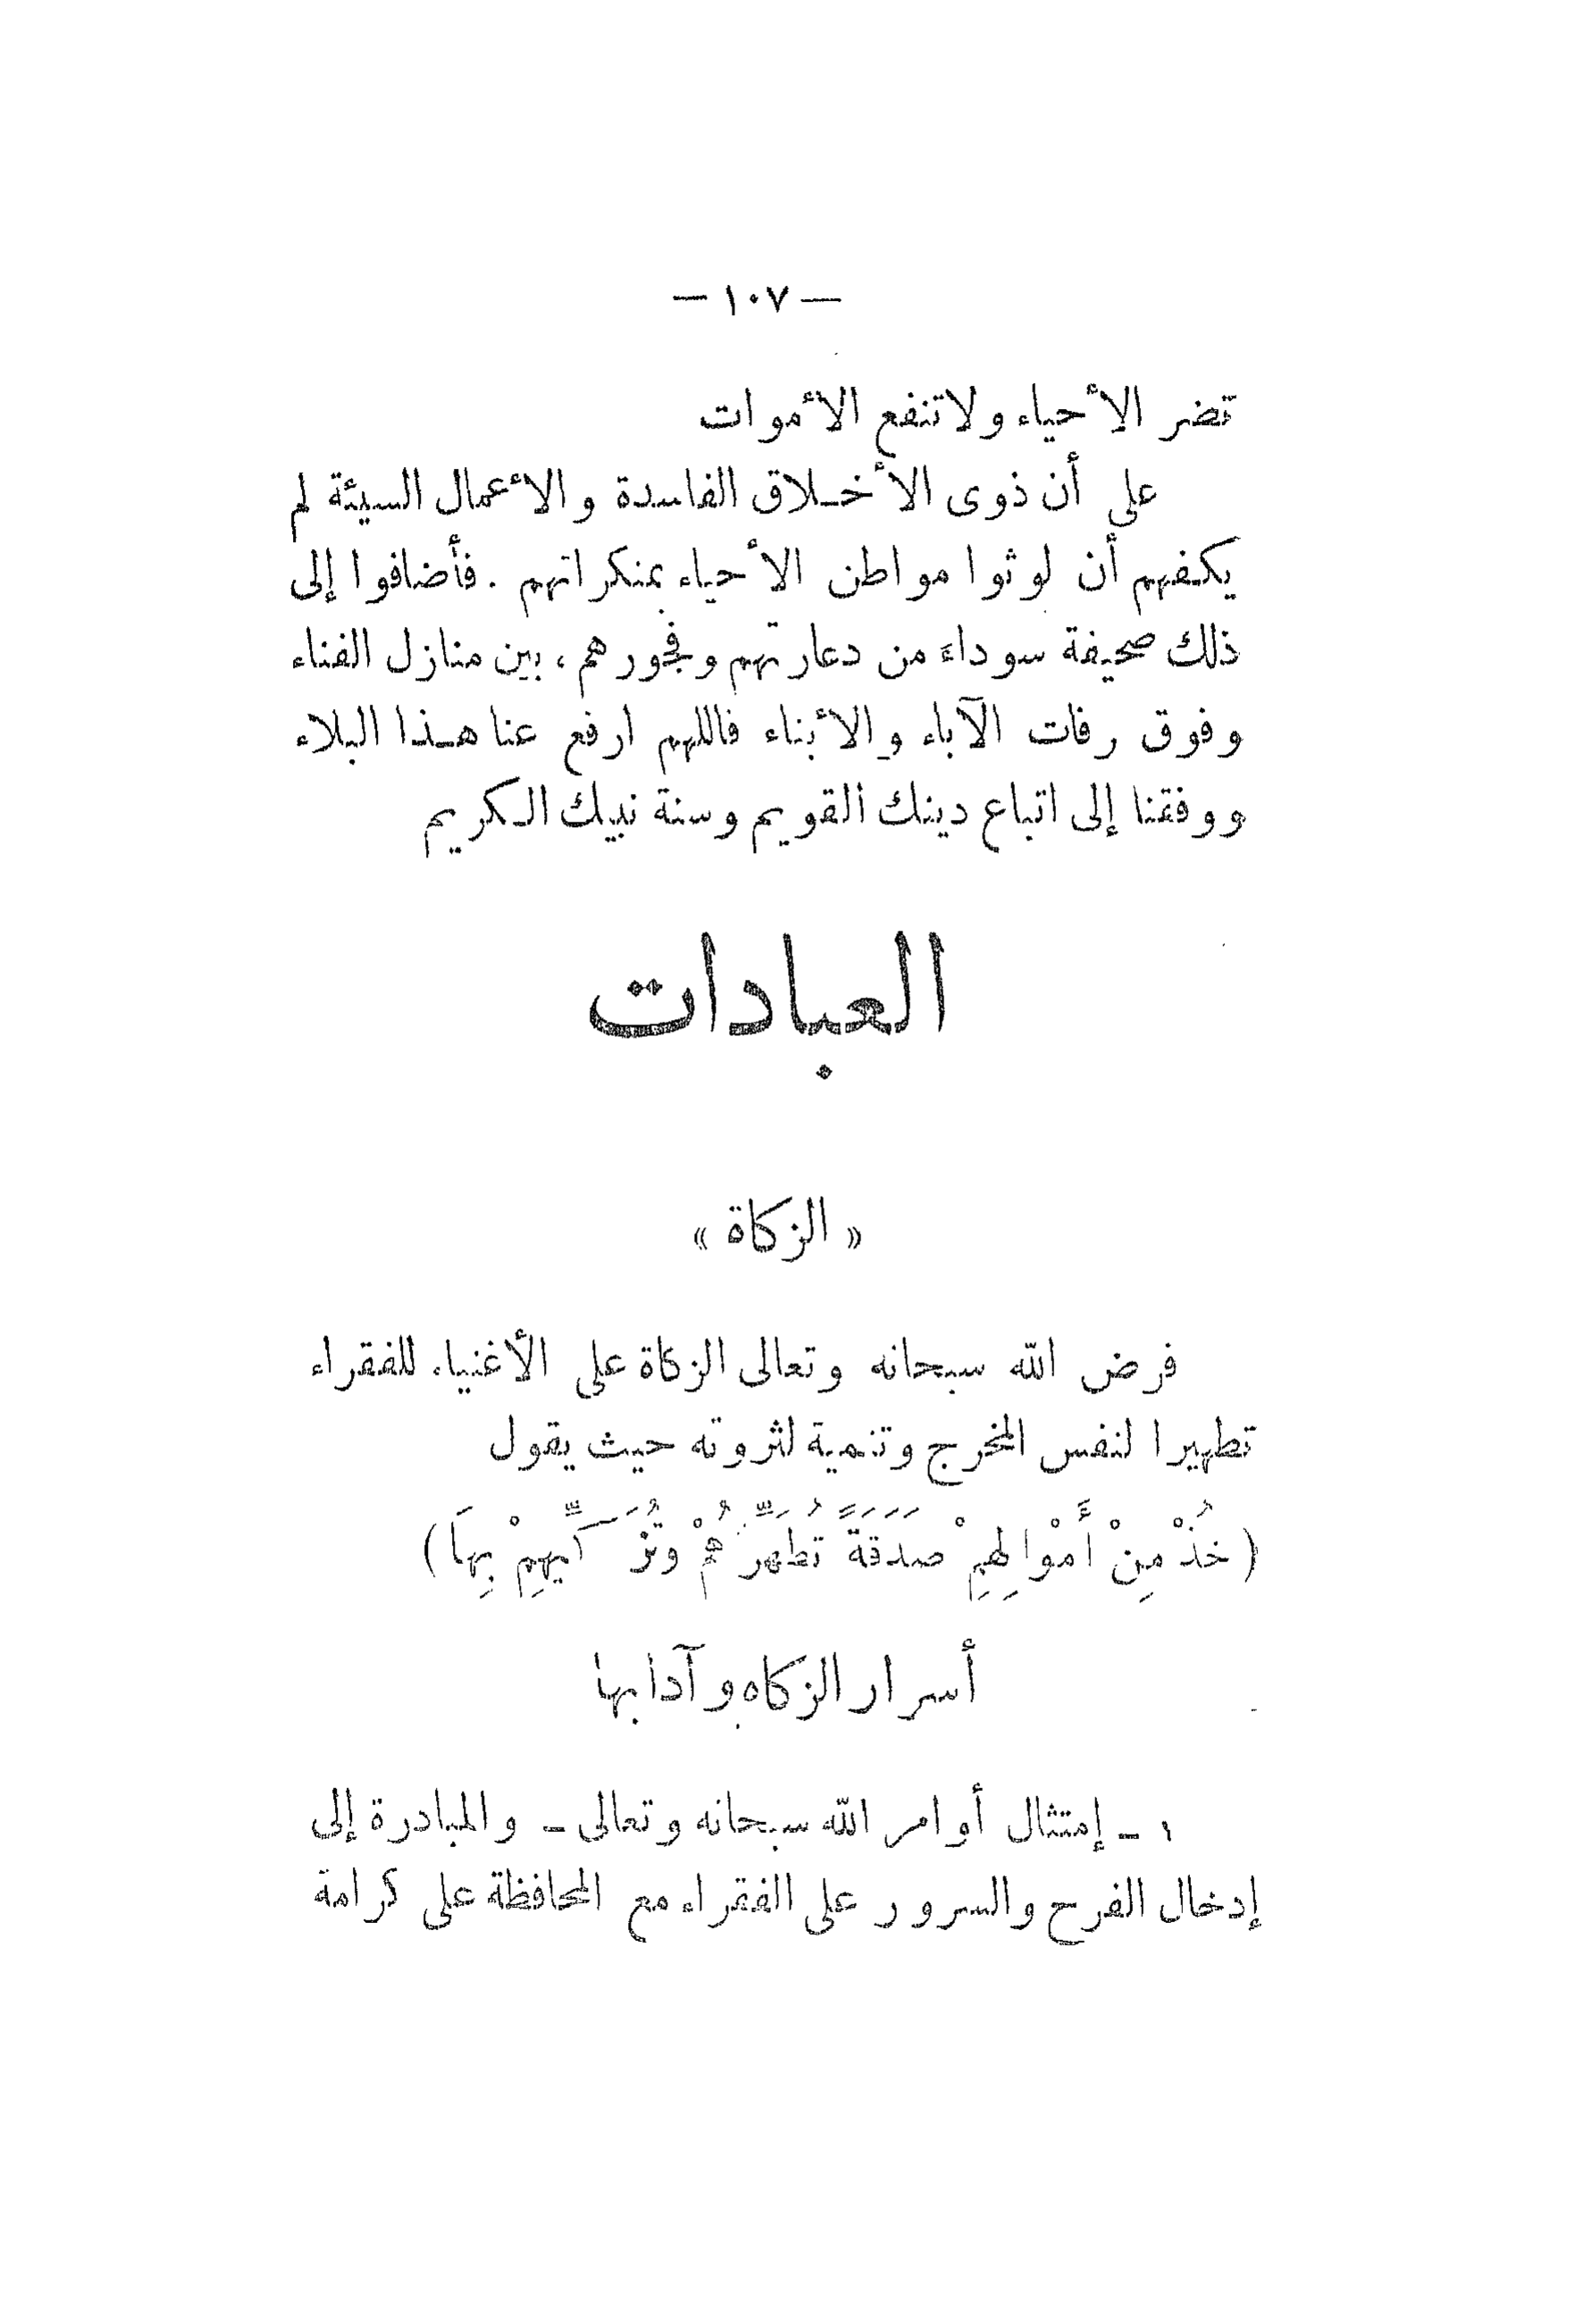 — ١٠٧ —
تضر الأحياء ولا تنفع الأموات
على أن ذوى الأخلاق الفاسدة والأعمال السيئة لم
يكفهم أن لوثوا مواطن الأحياء بمنكراتهم . فأضافوا إلى
ذلك صحيفة سوداء من دعارتهم وفجورهم ، بين منازل الفناء
وفوق رفات الآباء والأبناء فاللهم ارفع عنا هذا البلاء
ووفقنا إلى اتباع دينك القويم وسنة نبيك الكريم
العبادات
« الزكاة »
فرض الله سبحانه وتعالى الزكاة على الأغنياء للفقراء
تطهيرا لنفس المخرج وتنمية لثروته حيث يقول
(خُذْ مِنْ أَمْوالِهِمْ صَدَقَةً تُطَهِّرُهُمْ وَتُزَكِّيهِمْ بِهَا)
أسرار الزكاه وآدابها
١ ـ إمتثال أوامر الله سبحانه وتعالى ـ والمبادرة إلى
إدخال الفرح والسرور على الفقراء مع المحافظة على كرامة